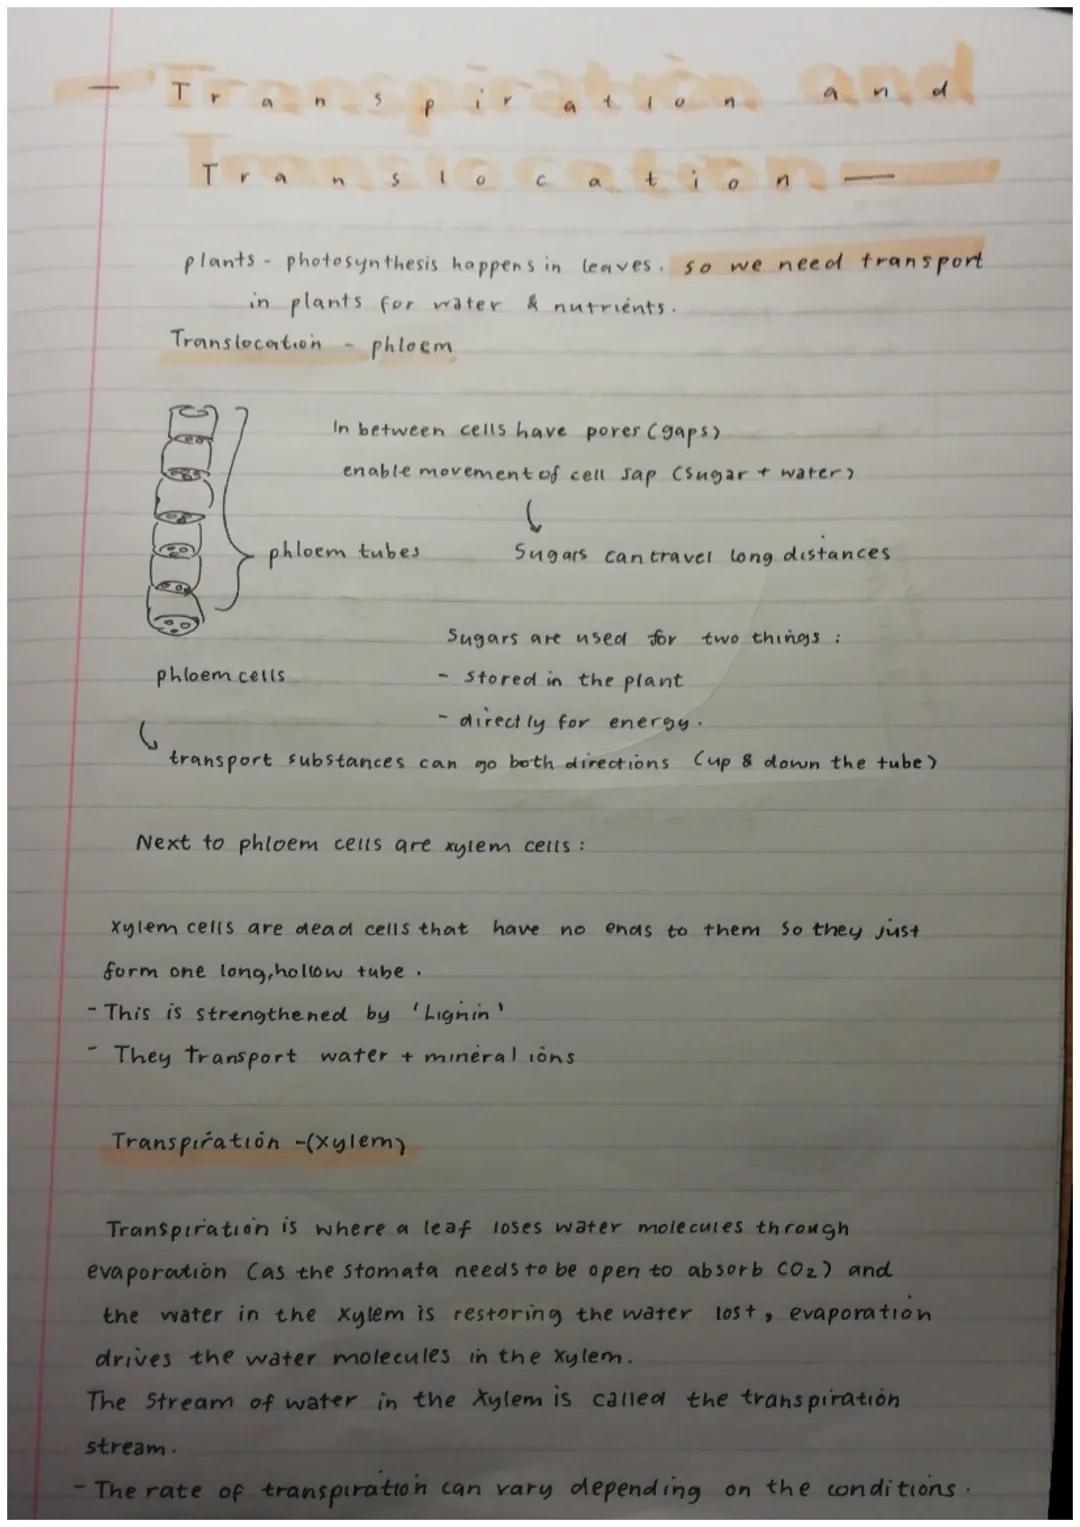 — Transpiration and
Translocation —
plants - photosynthesis happens in leaves. so we need transport
in plants for water & nutrients.
Translocation - phloem
In between cells have pores (gaps)
enable movement of cell sap (sugar + water)
phloem tubes
Sugars can travel long distances
Sugars are used for two things :
phloem cells
- stored in the plant
- directly for energy.
transport substances can go both directions (up & down the tube)
Next to phloem cells are xylem cells :
Xylem cells are dead cells that have no ends to them so they just
form one long, hollow tube .
- This is strengthened by 'Lignin'
- They transport water + mineral ions
Transpiration -(xylem)
Transpiration is where a leaf loses water molecules through
evaporation (as the stomata needs to be open to absorb CO2) and
the water in the xylem is restoring the water lost, evaporation
drives the water molecules in the xylem.
The Stream of water in the xylem is called the transpiration
stream.
- The rate of transpiration can vary depending on the conditions.